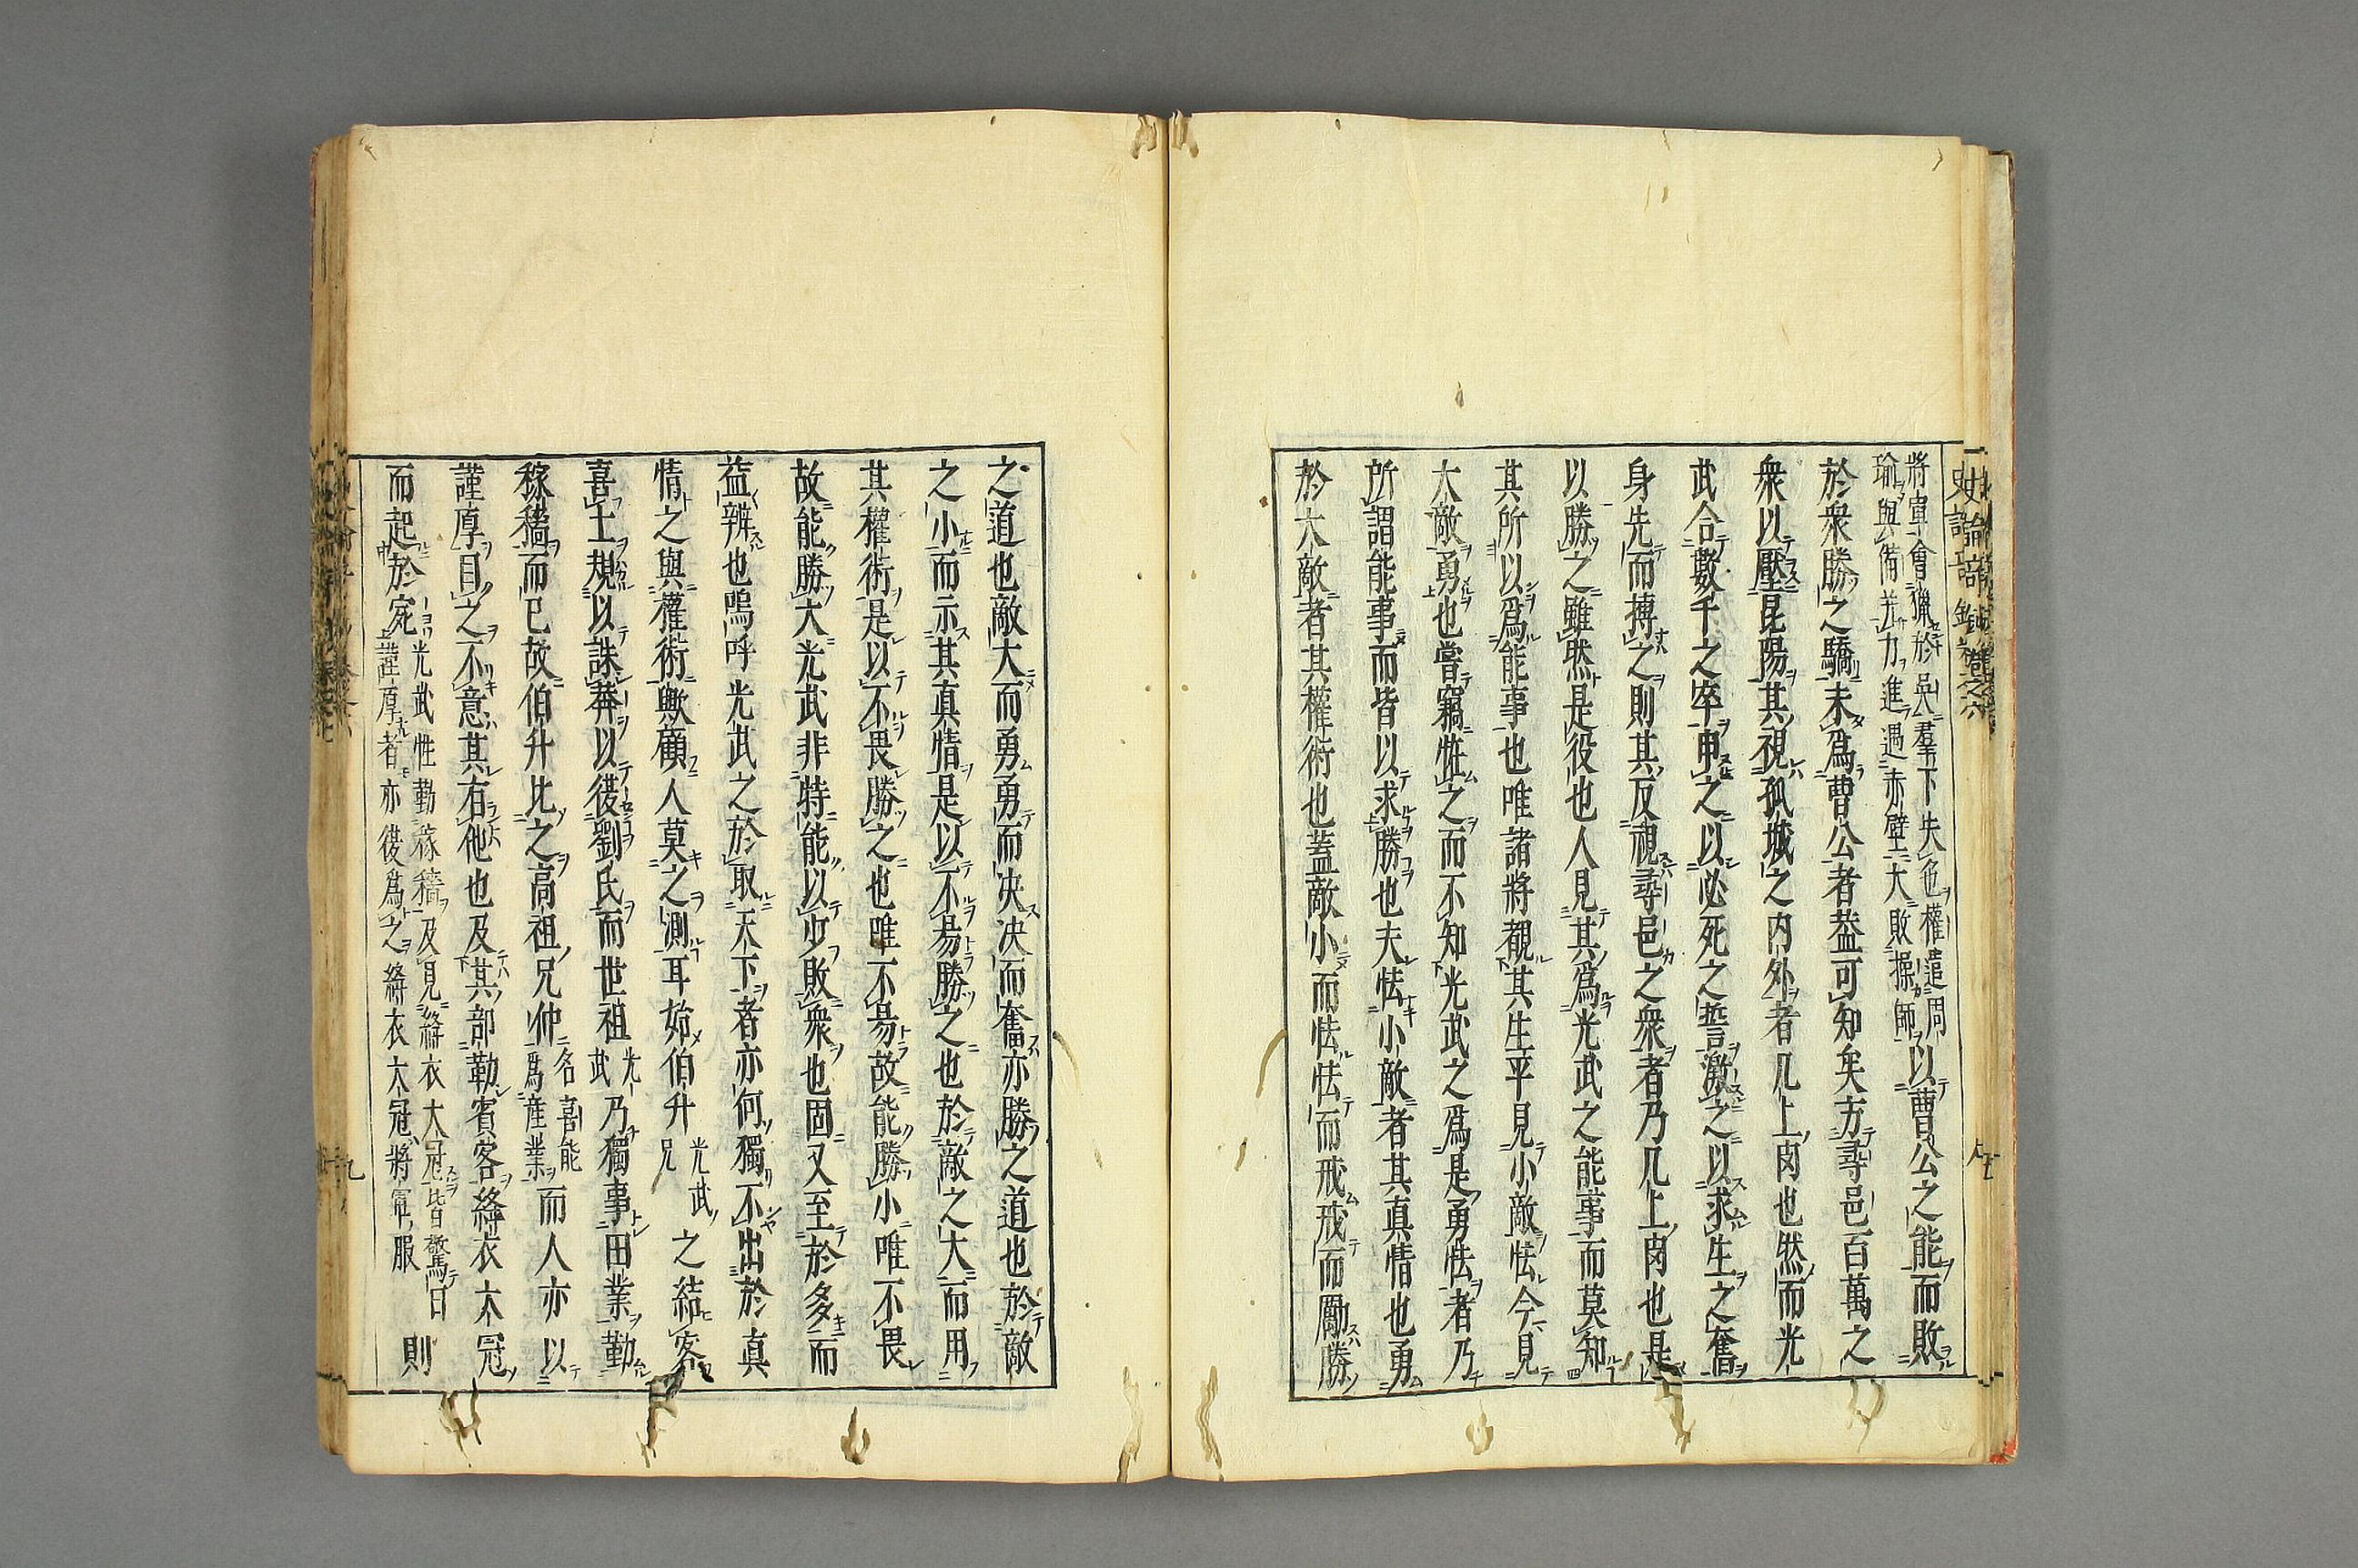 將軍會獵於吳羣下失色權遣周
瑜與備并力進遇赤壁大敗操師
以曹公之能而敗
於衆勝之驕未爲曹公者葢可知矣方尋邑百萬之
衆以壓昆陽其視孤城之内外者几上肉也然而光
武合數千之卒申之以必死之誓激之以求生之奮
身先而搏之則其反視尋邑之衆者乃几上肉也是
以勝之雖然是役也人見其爲光武之能事而莫知
其所以爲能事也唯諸將覩其生平見小敵怯今見
大敵勇也嘗竊恠之而不知光武之爲是勇怯者乃
所謂能事而皆以求勝也夫怯小敵者其真情也勇
於大敵者其權術也蓋敵小而怯怯而戒戒而勵勝
之道也敵大而勇勇而决决而奮亦勝之道也於敵
之小而示其真情是以不易勝之也於敵之大而用
其權術是以不畏勝之也唯不易故能勝小唯不畏
故能勝大光武非特能以少敗衆也固又至於多而
益辨也嗚呼光武之於取天下者亦何獨不出於真
情之與權術歟顧人莫之測耳始伯升
光武
兄
之結客
喜士規以誅莽以復劉氏而世祖
光
武
乃獨事田業勤
稼穡而已故伯升比之高祖兄仲
名喜能
爲産業
而人亦以
謹厚目之不意其有他也及其部勒賓客絳衣大冠
而起於宛
光武性勤稼穡及見絳衣大冠皆驚曰
謹厚者亦復爲之絳衣大冠將軍服
則